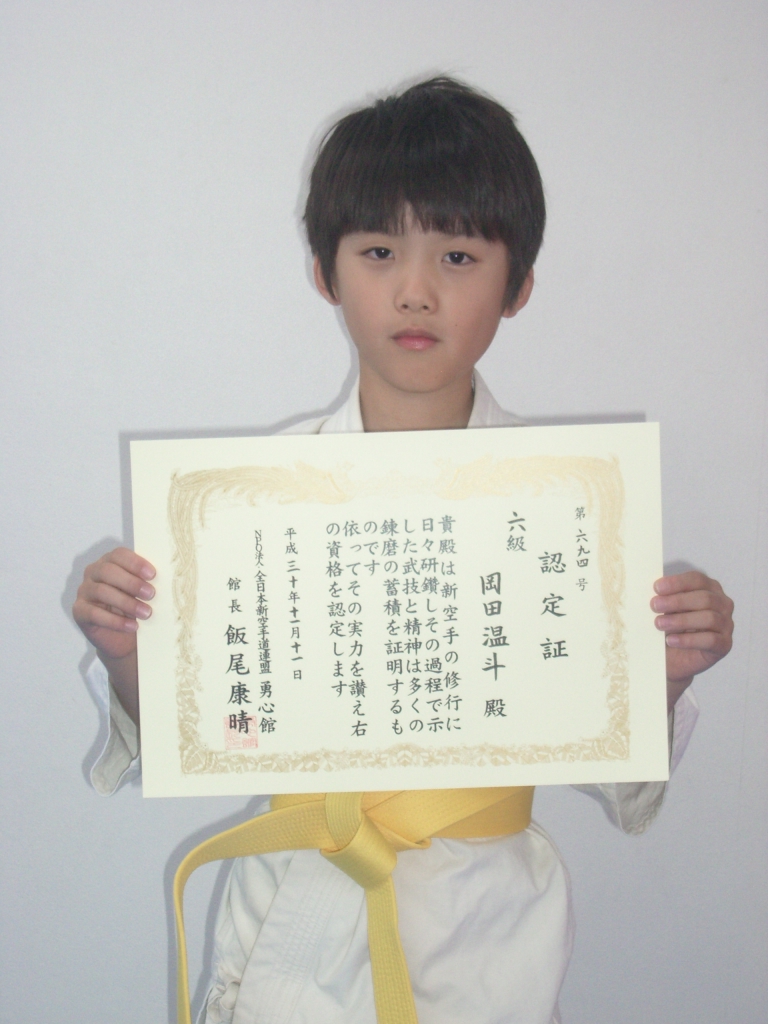 第六九四号
認定証
六級
岡田温斗殿
貴殿は新空手の修行に
日々研鑽しその過程で示
した武技と精神は多くの
錬磨の蓄積を証明するも
のです
依ってその実力を讃え右
の資格を認定します
平成三十年十一月十一日
NPO法人・全日本新空手道連盟 勇心館
館長 飯尾康晴